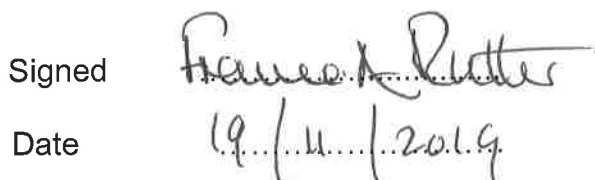 Signed Frances A Rutter
Date 19/11/2019